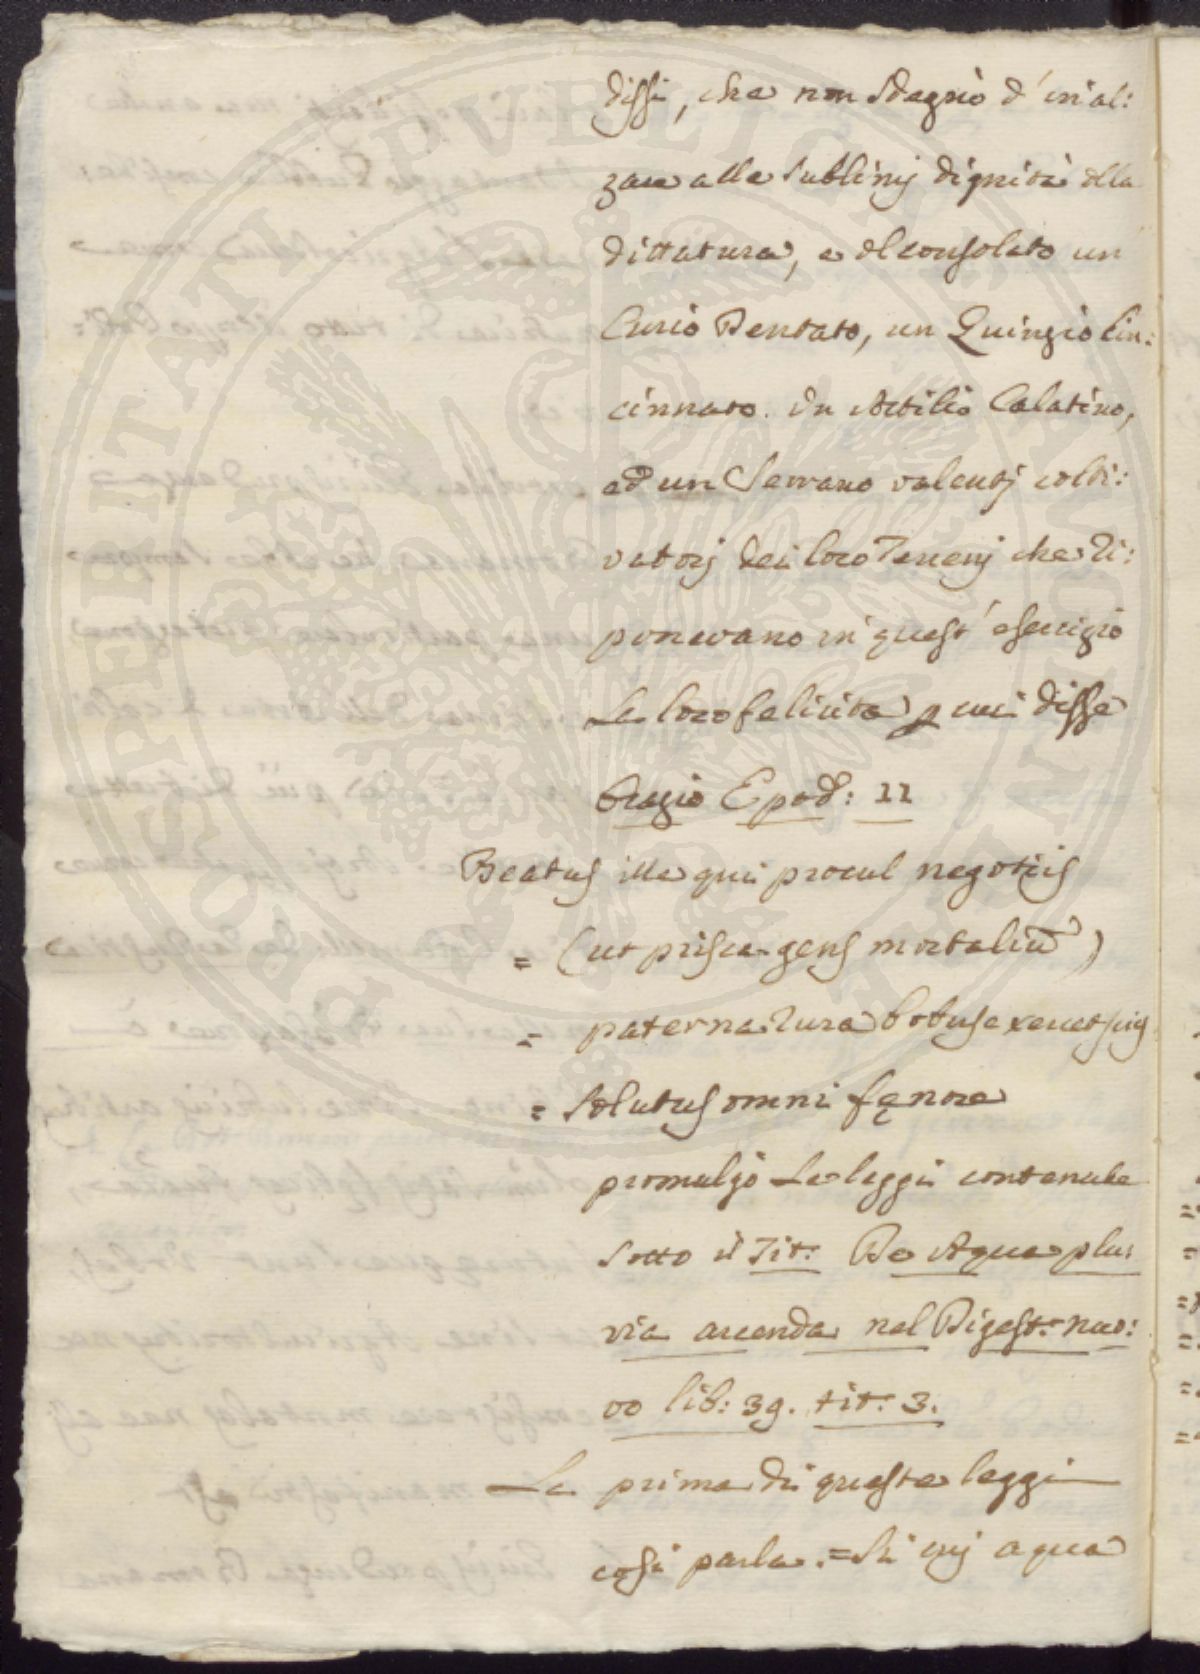 dissi, che non sdegnò d'inal:
zare alle sublimj dignità della
dittatura, e del consolato un
Curio Dentato, un Quinzio Cin:
cinnato. Un Attilio Calatino,
ed un Serrano valentj colti:
vatorj dei loro Terrenj che ri:
ponevano in quest'esercizio
La loro felicità p cui disse
Orazio Epod: 11
Beatus ille qui procul negotijs
= (ut prisca gens mortaliũ)
= paterna rura bobus exercet suis
= solutus omni fęnore
promulgò Le leggi contenute
sotto il Tit: De Aqua plu:
via arcenda nel Digest: nuo:
vo lib: 39. tit: 3.
La prima di queste leggi
così parla. = Si cuj aqua
PROSPERITATI PVBLICAE AVGENDAE